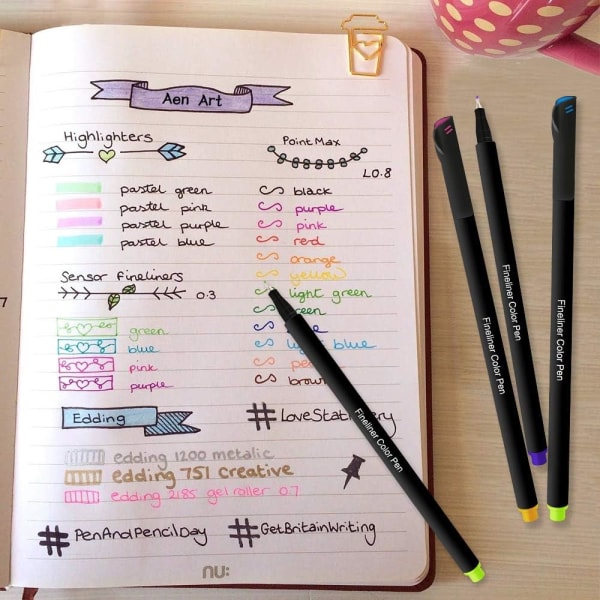 Aen Art
Highlighters
pastel green
pastel pink
pastel purple
pastel blue
Sensor Fineliners
0.3
green
blue
pink
purple
Point Max
L0.8
black
purple
pink
red
orange
yellow
light green
green
blue
brown
Edding
edding 1200 metalic
edding 751 creative
edding 2185 gel roller 0.7
#LoveStationery
#PenAndPencilDay
#GetBritainWriting
nu:
Fineliner Color Pen
Fineliner Color Pen
Fineliner Color Pen
Fineliner Color Pen
7